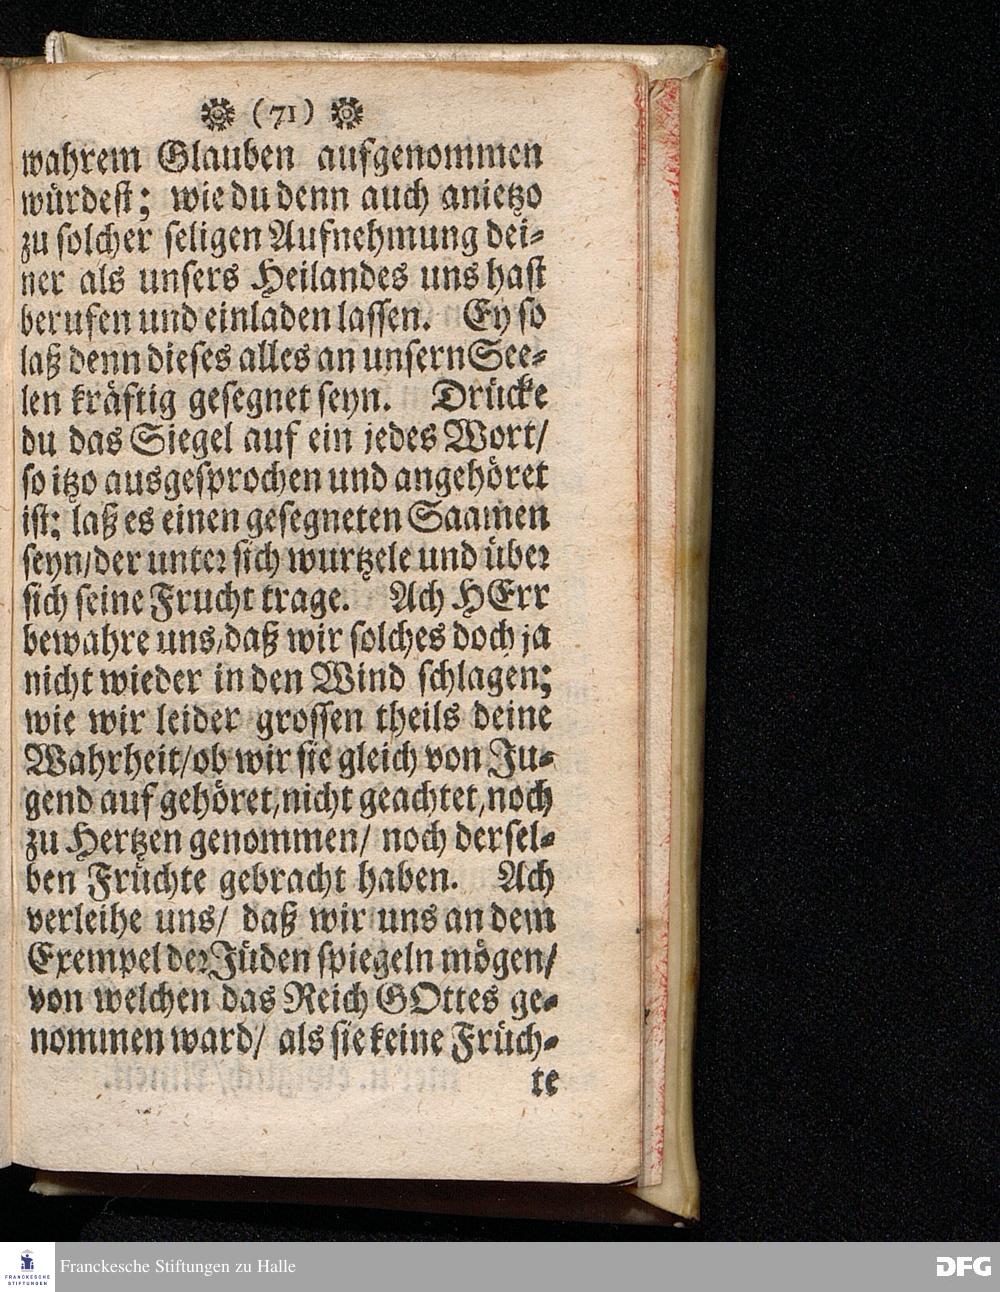 (71)
wahrem Glauben aufgenommen
würdest; wie du denn auch anietzo
zu solcher seligen Aufnehmung dei-
ner als unsers Heilandes uns hast
berufen und einladen lassen. Ey so
laß denn dieses alles an unsern See-
len kräftig gesegnet seyn. Drücke
du das Siegel auf ein jedes Wort/
so itzo ausgesprochen und angehöret
ist; laß es einen gesegneten Saamen
seyn/der unter sich wurtzele und über
sich seine Frucht trage. Ach HErr
bewahre uns/daß wir solches doch ja
nicht wieder in den Wind schlagen;
wie wir leider grossen theils deine
Wahrheit/ob wir sie gleich von Ju-
gend auf gehöret/nicht geachtet/noch
zu Hertzen genommen/ noch dersel-
ben Früchte gebracht haben. Ach
verleihe uns/ daß wir uns an dem
Exempel der Jüden spiegeln mögen/
von welchen das Reich GOttes ge-
nommen ward/ als sie keine Früch-
te
FRANCKESCHE STIFTUNGEN
Franckesche Stiftungen zu Halle
DFG